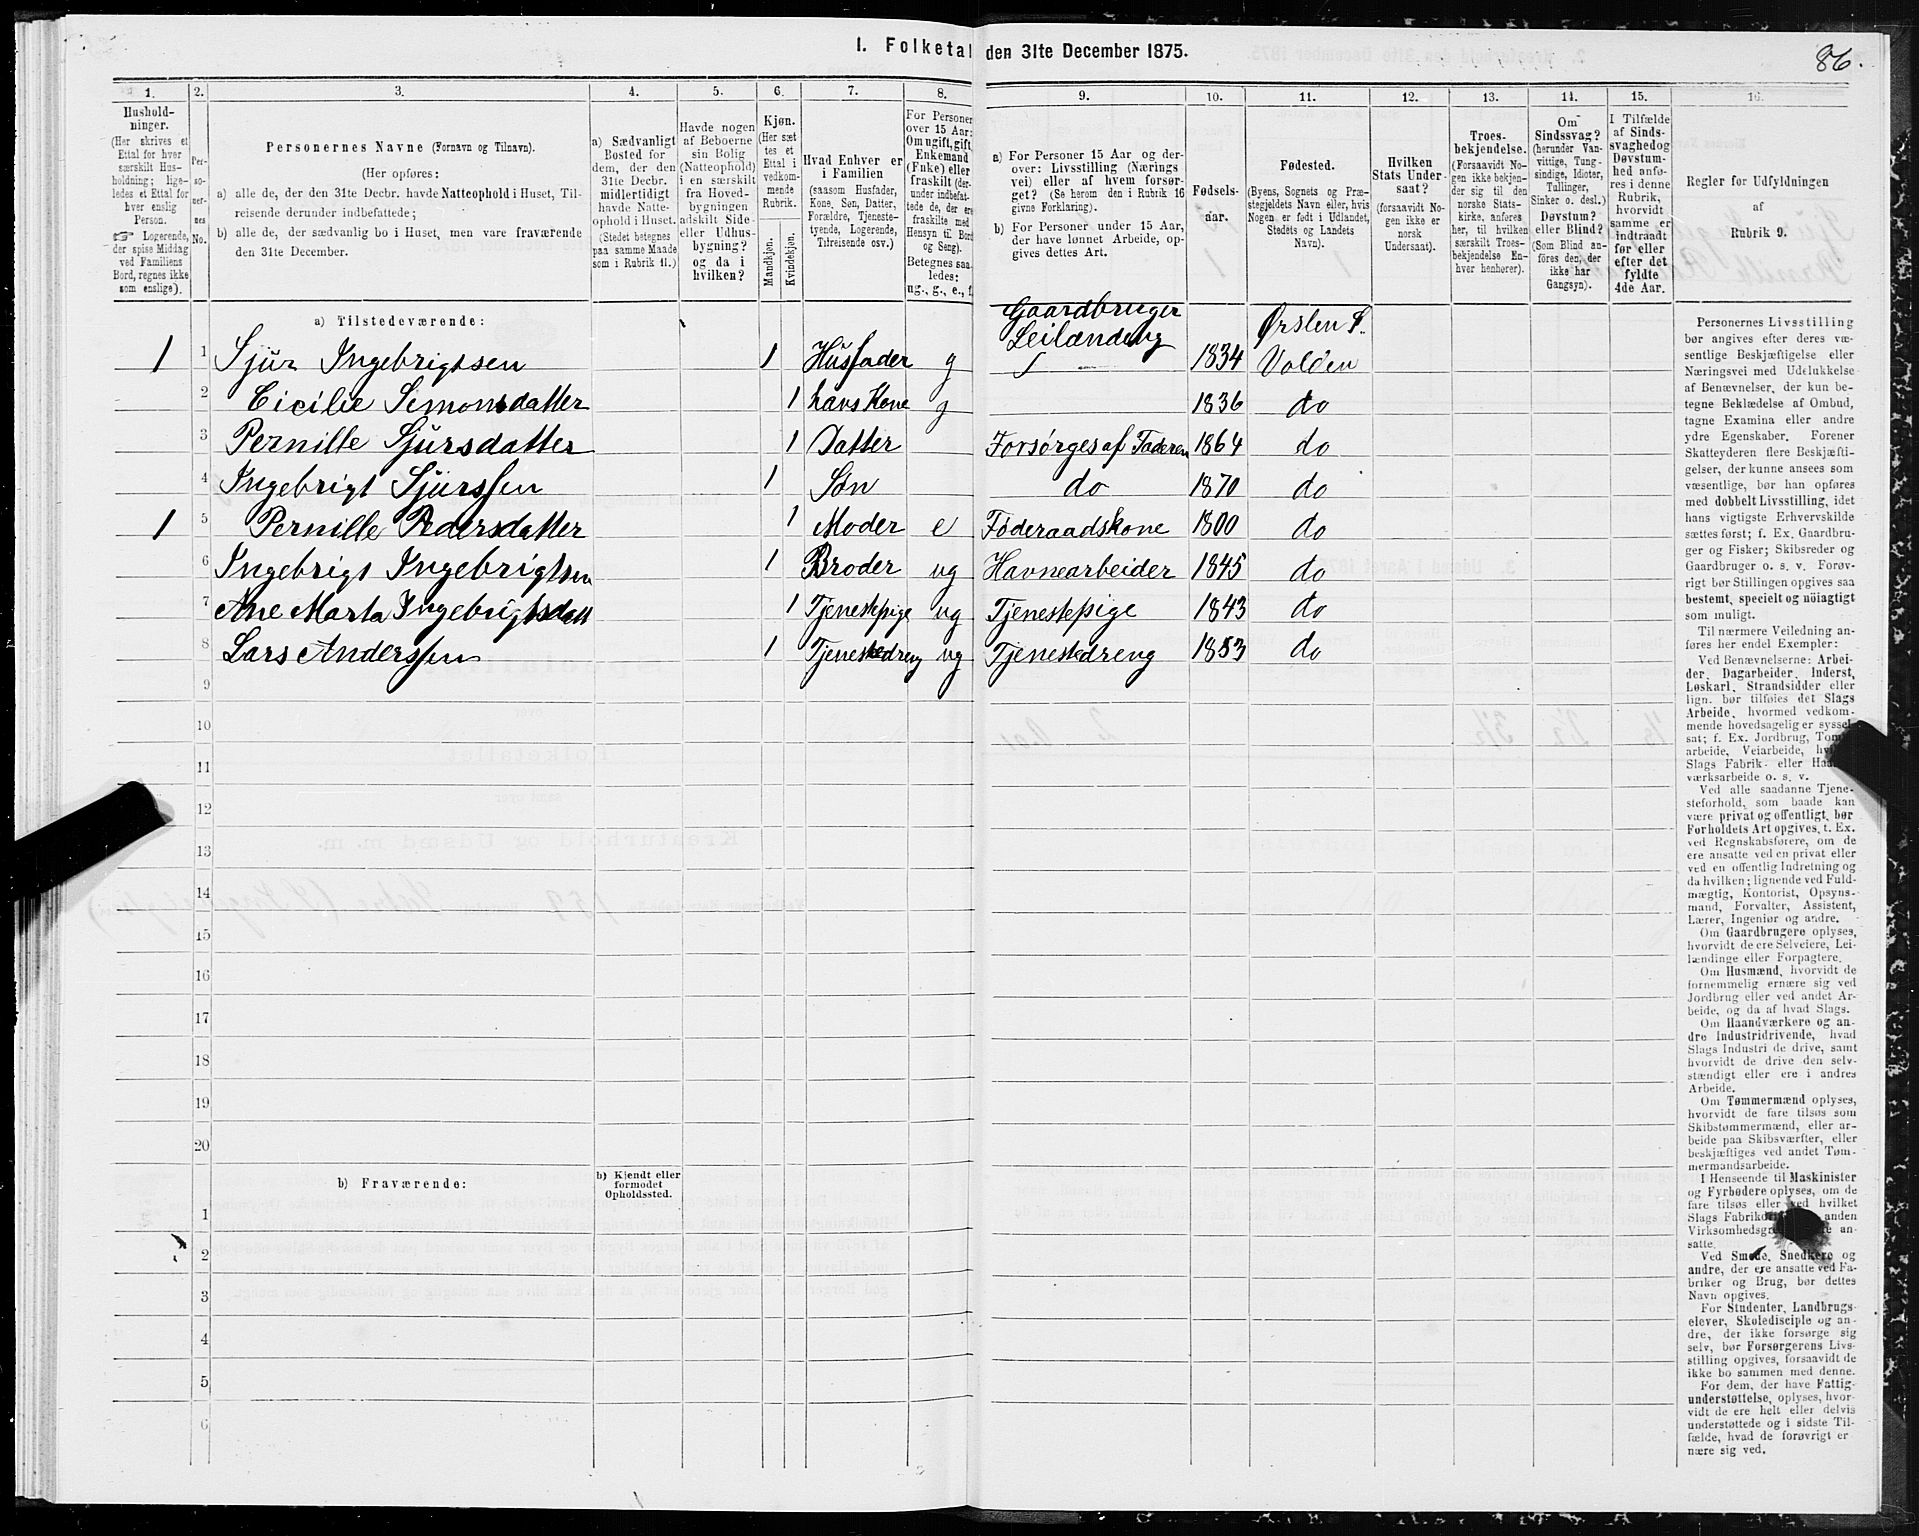 I. Folketal den 31te December 1875.
86.
1.
2.
3.
4.
5.
6.
7.
8.
9.
10.
11.
12.
13.
14.
15.
16.
Hushold-
ninger.
(Her skrives et
Ettal for hver
særskilt Hus-
holdning; lige-
ledes et Ettal
for hver enslig
Person.
☞ Logerende,
der spise Middag
ved Familiens
Bord, regnes ikke
som enslige).
Per-
so-
ner-
nes
No.
Personernes Navne (Fornavn og Tilnavn).
(Her opføres:
a) alle de, der den 31te Decbr. havde Natteophold i Huset, Til-
reisende derunder indbefattede;
b) alle de, der sædvanlig bo i Huset, men vare fraværende
den 31te December.
a) Sædvanligt
Bosted for
dem, der den
31te Decbr.
midlertidigt
havde Natte-
ophold i Huset.
(Stedet betegnes
paa samme Maade
som i Rubrik 11.)
Havde nogen
af Beboerne
sin Bolig
(Natteophold)
i en særskilt
fra Hoved-
bygningen
adskilt Side-
eller Udhus-
bygning?
og da i
hvilken?
Kjøn.
(Her sæt-
tes et
Ettal i
vedkom-
mende
Rubrik.
Mandkjøn.
Kvindekjøn.
Hvad Enhver er
i Familien
(saasom Husfader,
Kone, Søn, Datter,
Forældre, Tjeneste-
tyende, Logerende,
Tilreisende osv.)
For Personer
over 15 Aar:
Om ugift, gift,
Enkemand
(Enke) eller
fraskilt (der-
under indbefat-
tede de, der ere
fraskilte med
Hensyn til Bord
og Seng).
Betegnes saa-
ledes:
ug., g., e., f.
a) For Personer 15 Aar og der-
over: Livsstilling (Nærings
vei) eller af hvem forsør-
get? (Se herom den i Rubrik 16
givne Forklaring).
b) For Personer under 15 Aar,
der have lønnet Arbeide, op-
gives dettes Art.
Fødsels-
aar.
Fødested.
(Byens, Sognets og Præ-
stegjeldets Navn eller, hvis
Nogen er født i Udlandet,
Stedets og Landets
Navn).
Hvilken
Stats Under-
saat?
(forsaavidt No-
gen ikke er
norsk
Undersaat).
Troes-
bekjendelse.
(Forsaavidt No-
gen ikke bekjen-
der sig til den
norske Stats-
kirke, anføres
her, til hvilken
særskilt Troes-
bekjendelse En-
hver henhører).
Om
Sindssvag?
(herunder Van-
vittige, Tung-
sindige, Idioter,
Tullinger,
Sinker o. desl.)
Døvstum?
eller Blind?
(Som Blind an-
føres den, der
ikke har
Gangsyn).
I Tilfælde
af Sinds-
svaghed og
Døvstum-
hed anfø-
res i denne
Rubrik,
hvorvidt
samme er
indtraadt
før eller
efter det
fyldte
4de Aar.
Regler for Udfyldningen
af
Rubrik 9.
a) Tilstedeværende:
Gaardbruger Ørsten S.
1 1 Sjur Ingebrigtsen 1 Husfader g Leilænding 1834 Volden
2 Cicilie Simonsdatter 1 hans Kone g 1836 do
3 Pernille Sjursdatter 1 Datter Forsørges af Faderen 1864 do
4 Ingebrigt Sjurssen 1 Søn do 1870 do
1 5 Pernille Pedersdatter 1 Moder e Føderaadskone 1800 do
6 Ingebrigt Ingebrigtsen 1 Broder ug Havnearbeider 1845 do
7 Ane Marta Ingebrigtsdatt 1 Tjenestepige ug Tjenestepige 1843 do
8 Lars Anderssen 1 Tjenestedreng ug Tjenestedreng 1853 do
9
10
11
12
13
14
15
16
17
18
19
20
b) Fraværende:
b) Kjendt eller
formodet
Opholdssted.
1
2
3
4
5
6
Personernes Livsstilling
bør angives efter deres væ-
sentlige Beskjæftigelse eller
Næringsvei med Udelukkelse
af Benævnelser, der kun be-
tegne Beklædelse af Ombud,
tagne Examina eller andre
ydre Egenskaber. Forener
Skatteyderen flere Beskjæfti-
gelser, der kunne ansees som
væsentlige, bør han opføres
med dobbelt Livsstilling, idet
hans vigtigste Erhvervskilde
sættes først; f. Ex. Gaardbru-
ger og Fisker; Skibsreder og
Gaardbruger o. s. v. Forøv-
rigt bør Stillingen opgives saa
bestemt, specielt og nöiagtigt
som muligt.
Til nærmere Veiledning an-
føres her endel Exempler:
Ved Benævnelserne: Arbei-
der, Dagarbeider, Inderst,
Løskarl, Strandsidder eller
lign. bør tilføies det Slags
Arbeide, hvormed vedkom-
mende hovedsagelig er syssel-
sat; f. Ex. Jordbrug, Tomt-
arbeide, Veiarbeide, hvilket
Slags Fabrik- eller Haand-
værksarbeide o. s. v.
Ved alle saadanne Tjene-
steforhold, som baade kan
være privat og offentligt, bør
Forholdets Art opgives, t. Ex.
ved Regnskabsførere, om de
ere ansatte ved en privat eller
ved en offentlig Indretning og
da hvilken; lignende ved Fuld-
mægtig, Kontorist, Opsyns-
mand, Forvalter, Assistent,
Lærer, Ingeniør og andre.
Om Gaardbrugere oplyses,
hvorvidt de ere Selveiere, Lei-
lændinge eller Forpagtere.
Om Husmænd, hvorvidt de
fornemmelig ernære sig ved
Jordbrug eller ved andet Ar-
beide, og da af hvad Slags.
Om Haandværkere og an-
dre Industridrivende, hvad
Slags Industri de drive, samt
hvorvidt de drive den selv-
stændigt eller ere i andres
Arbeide.
Om Tømmermænd oplyses,
hvorvidt de fare tilsøs som
Skibstømmermænd, eller ar-
beide paa Skibsværfter, eller
beskjæftiges ved andet Tøm-
mermandsarbeide.
I Henseende til Maskinister
og Fyrbødere oplyses, om de
fare tilsøs eller ved hvilket
Slags Fabrikdrift anden
Virksomhedsgren ere an-
satte.
Ved Smede, Snedkere og
andre, der ere ansatte ved Fa-
briker og Brug, bør dettes
Navn opgives.
For Studenter, Landbrugs-
elever, Skoledisciple og an-
dre, der ikke forsørge sig
selv, bør Forsørgerens Livs-
stilling opgives, forsaavidt de
ikke bo sammen med denne.
For dem, der have Fattig-
understøttelse, oplyses, hvor-
vidt de ere helt eller delvis
understøttede og i sidste Til-
fælde, hvad de forøvrigt er-
nære sig ved.